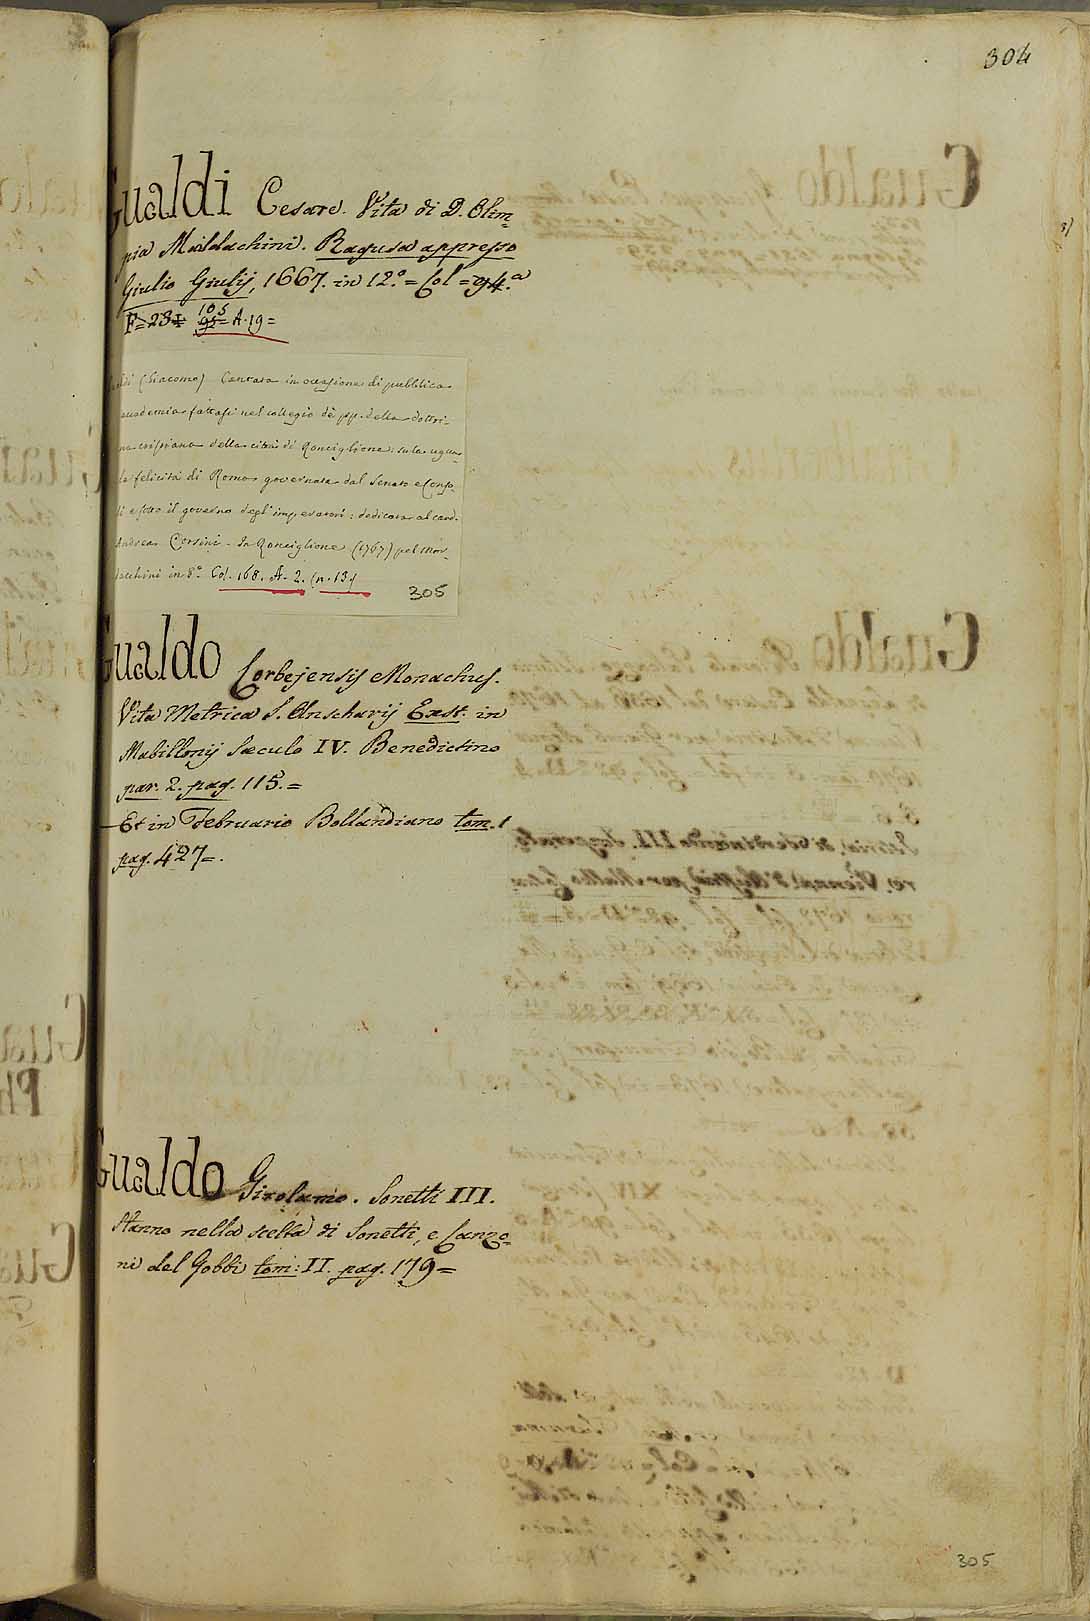 304
Gualdi Cesare. Vita di D. Olim=
pia Maldachini. Ragusa appresso
Giulio Giulij, 1667. in 12.° = Col = 94.a
F=231 105 95= A. 19=
(Giacomo) Cantata in occasione di pubblica
accademia fattasi nel collegio de pp. della dottri-
na cristiana della città di Ronciglione: sula ugua-
le felicità di Roma governata dal Senato e Conso-
li e sotto il governo degl' imperatori: dedicata al card.
Andrea Corsini - In Ronciglione (1767) pel Mor-
dacchini in 8.° Col. 168. A. 2. (n. 13)
305
Gualdo Corbejensis Monachus.
Vita Metrica S. Anscharij Exst. in
Mabillonij Sæculo IV. Benedictino
par. 2. pag. 115.=
Et in Februario Bollandiano tom. 1
pag. 427=.
Gualdo Girolamo. Sonetti III.
Stanno nella scelta di Sonetti, e Canzo=
ni del Gobbi tom: II. pag. 179=
305